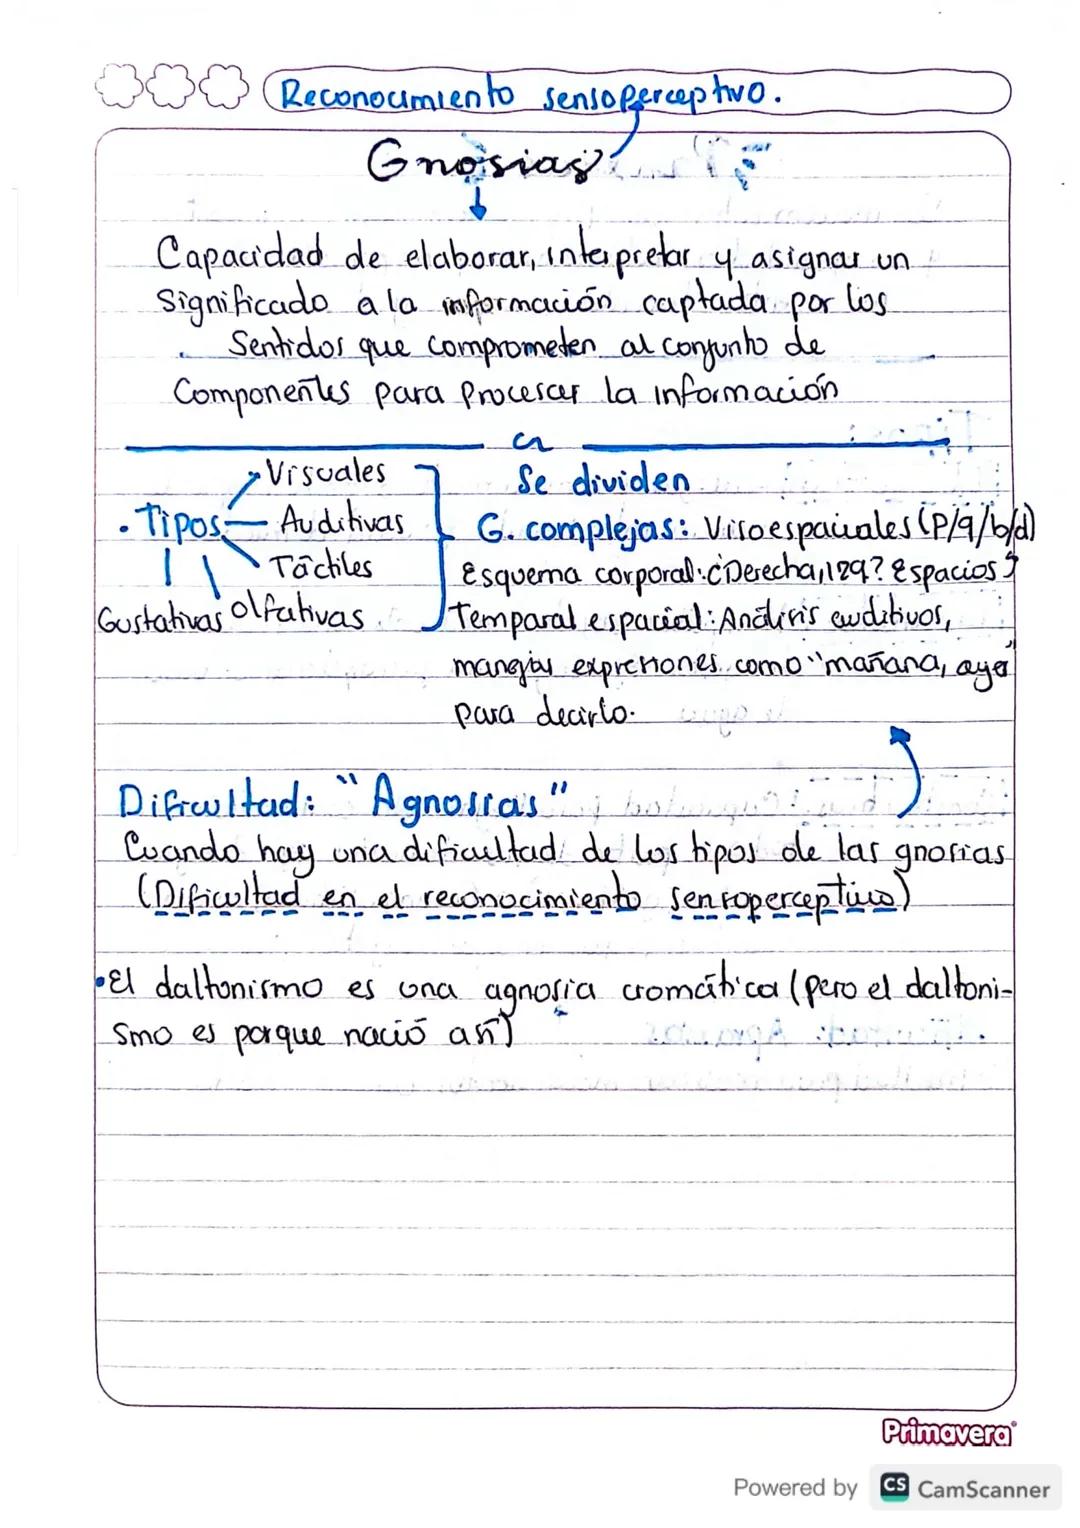 Reconocimiento sensoperceptivo.
Gnosias
Capacidad de elaborar, interpretar y asignar un
significado a la información captada por los
Sentidos que comprometen al conjunto de
Componentes para Procesar la información
Se dividen
• Tipos
Visuales
Auditivas
Táctiles
Gustativas Olfativas
G. complejas: Visoespaciales (P/q/b/d)
Esquema corporal: ¿Derecha, izq? Espacios?
Temporal espacial: Análisis auditivos,
expresiones como "mañana, ayer"
para decirlo.
Dificultad: "Agnosias"
Cuando hay una dificultad de los tipos de las gnosias
(Dificultad en el reconocimiento sensoperceptivo)
• El daltonismo es una agnosia cromática (pero el daltoni-
smo es porque nació así)
Primavera
Powered by CS CamScanner